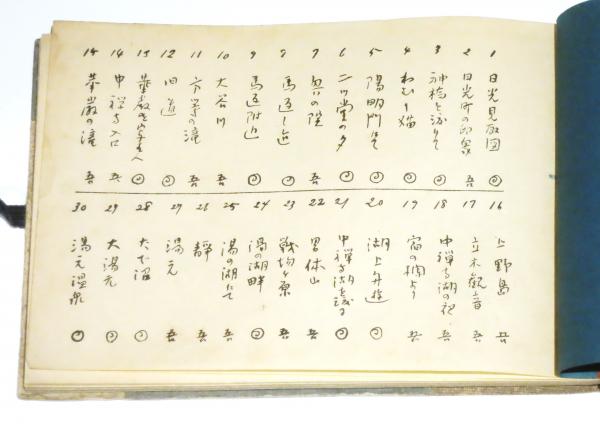 1 日光見取図 ◎
2 日光町の印象 吾
3 神橋を渡りて ◎
4 ねむり猫 吾
5 陽明門にて ◎
6 二ツ堂の夕 ◎
7 奥の院 吾
8 馬返し迄 ◎
9 馬返附近 ◎
10 大谷川 吾
11 方等の滝 吾
12 旧道 ◎
13 ◎
14 中禅寺入口 吾
15 華厳の滝 吾
16 上野島 吾
17 立木観音 吾
18 中禅寺湖の 吾
19 宿の欄より 吾
20 湖上舟遊 ◎
21 中禅寺湖を ◎
22 男体山 吾
23 戦場ヶ原 吾
24 湯の湖畔 ◎
25 湯の湖にて 吾
26 静 吾
27 湯元 吾
28 ◎
29 大湯元 ◎
30 湯元温泉 ◎